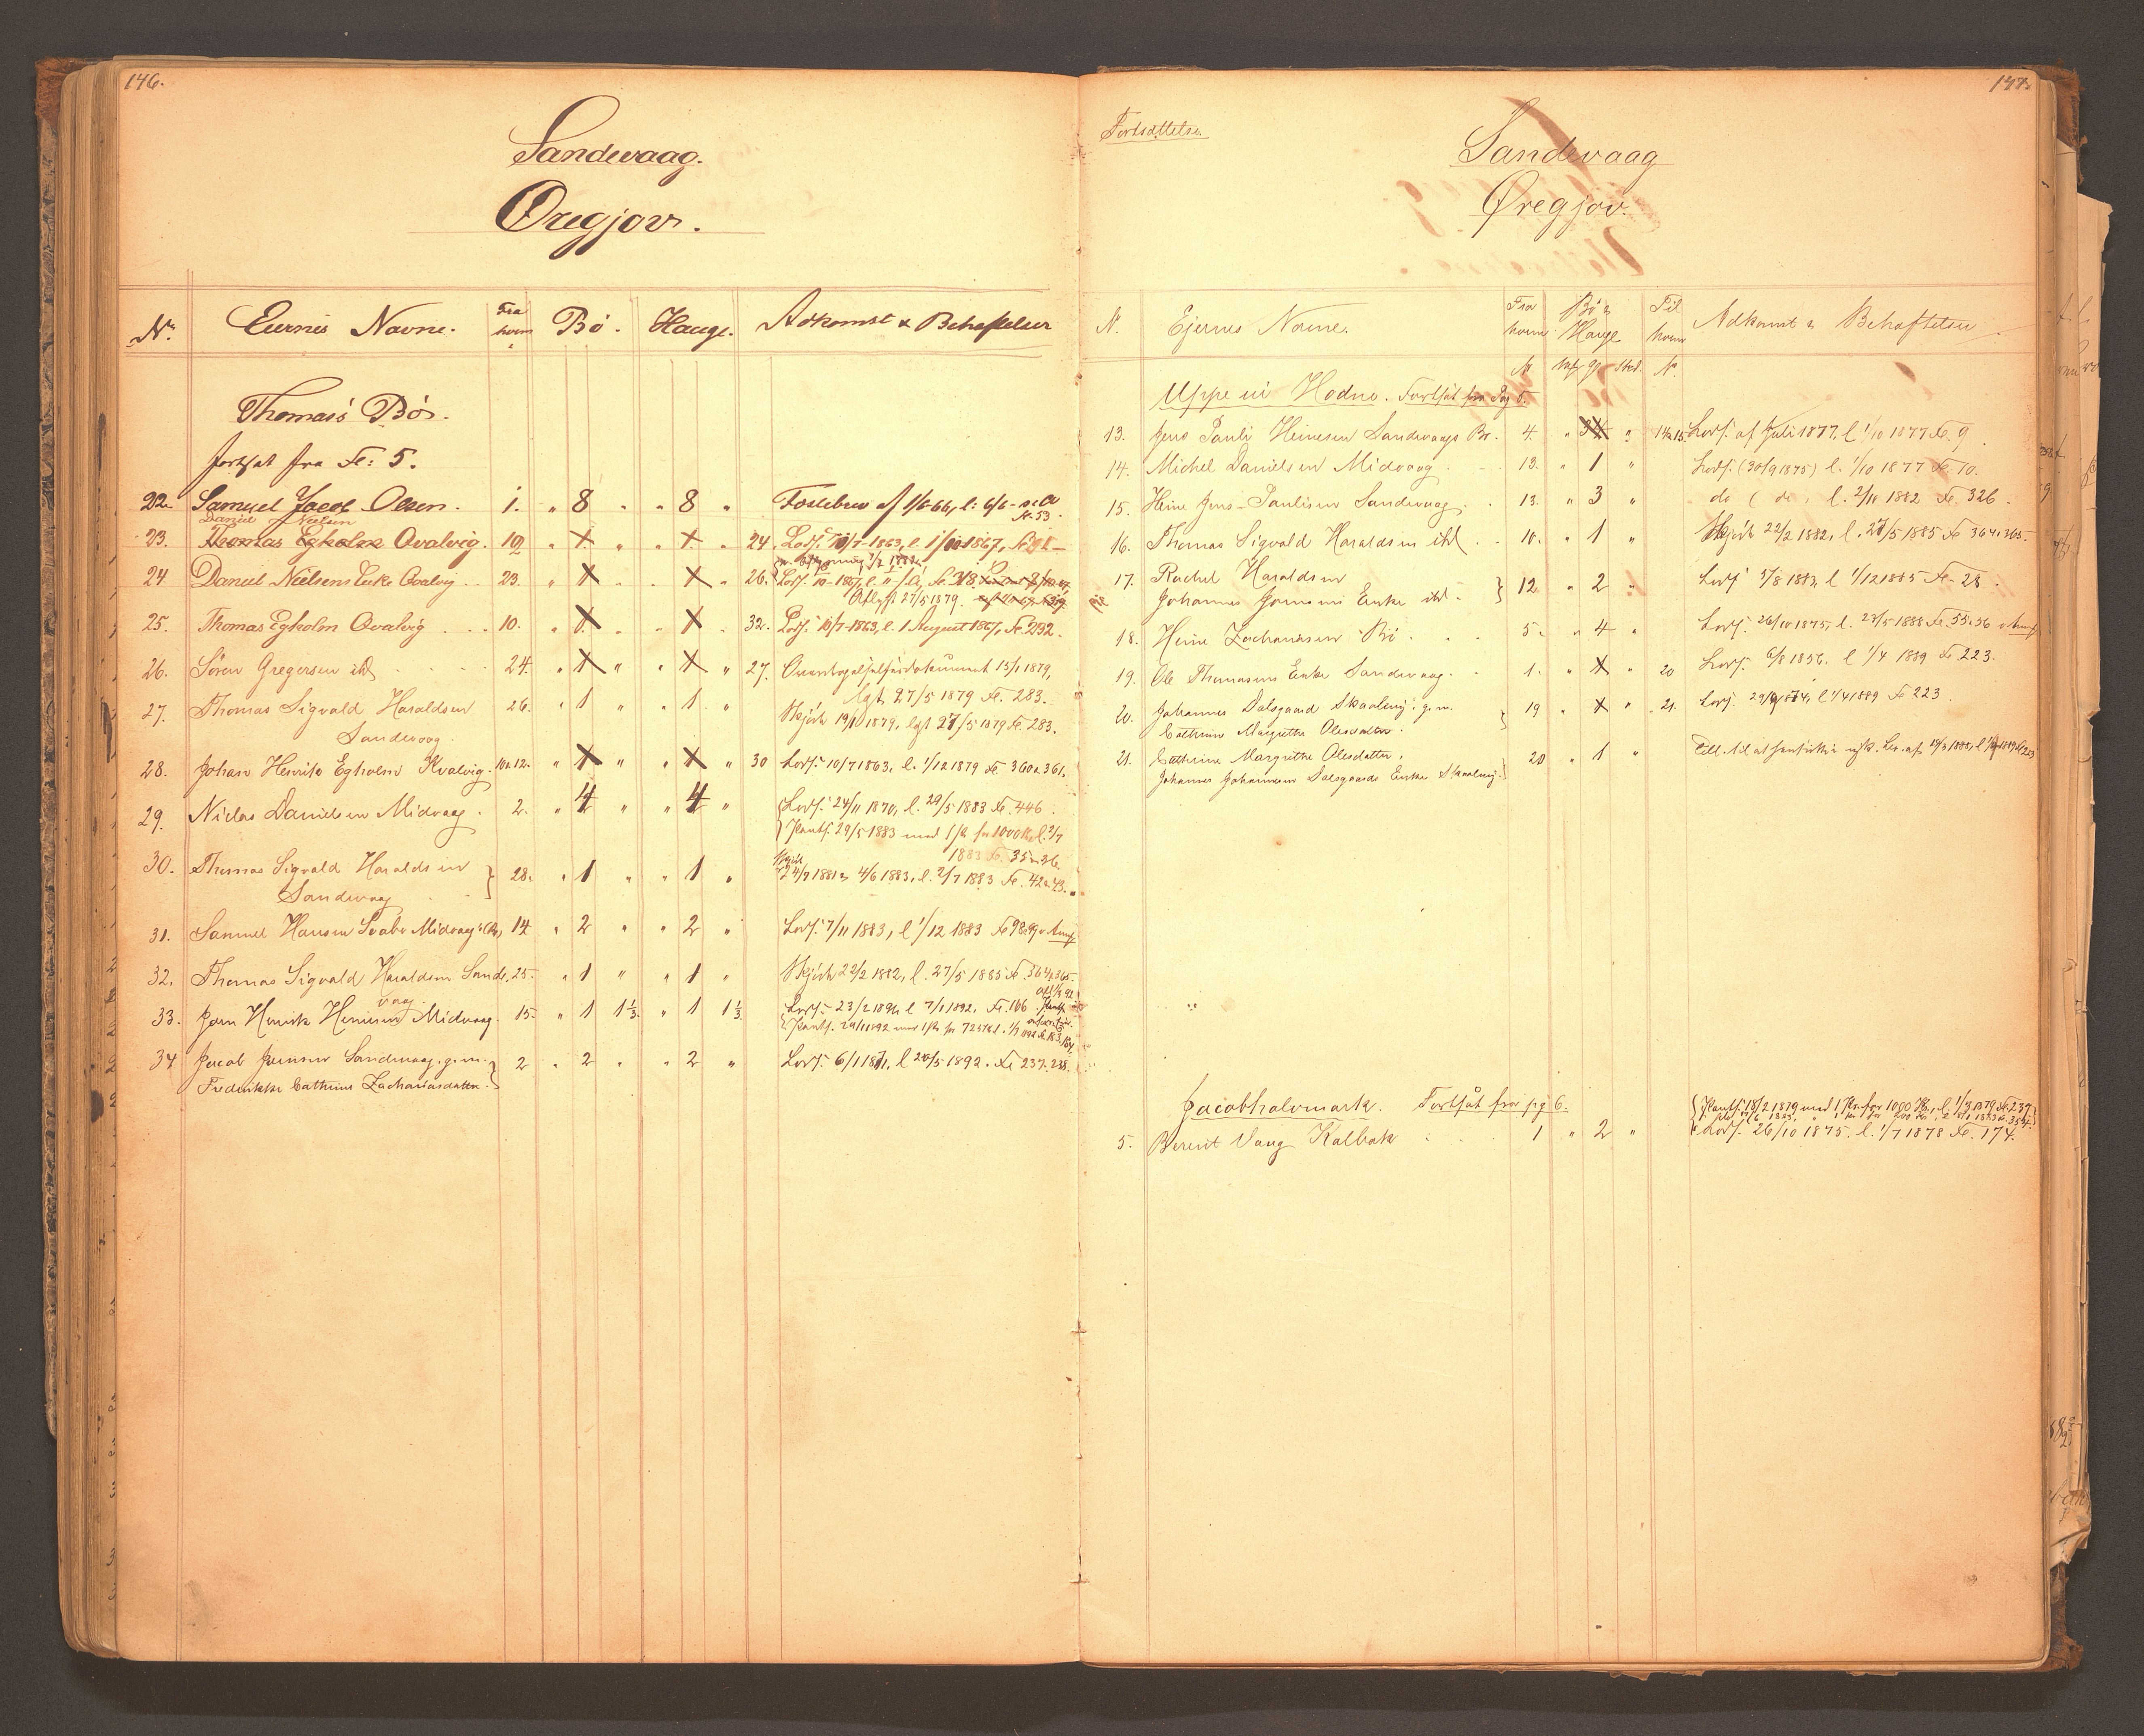 146.
Sandevaag.
Øregjov.
Nr. Eiernes Navne. Fra hvem Bø. Hauge. Adkomst & Behæftelser
Thomasò Bø.
fortsat fra Fo: 5.
22. Samuel Jacob Olsen. 1. " 8 " " 8 " Fæstebrev af 1/6-66, l: 6/6-
No 53.
Daniel Nielsen
23. Thomas Egholm Qvalvig. 10 " 1. " " 1. " 24 Lovf. 10/7-1863, l. 1/10 1867,
24. Daniel Nielsens Enke Qvalvig .. 23. " 1 " " 1 " 26. Lovf. 10-1867, l.
Aflyst 27/5 1879.
25. Thomas Egholm Qvalvig . . . 10. " 1. " " 1 " 32. Lovf. 10/7-1863, l. 1 August 1867, Fo. 232.
26. Sören Gregersen ibd . . . . 24. " 1 " " 1 " 27. Overdragelsesdokument 15/1 1879,
lyst 27/5 1879 Fo. 283.
27. Thomas Sigvald Haraldsen 26. " 1 " " 1 " Skjöde 19/1 1879, lyst 27/5 1879 Fo. 283.
Sandevaag.
28. Johan Henrik Egholm Kvalvig. 10 & 12. " 1 " " 1 " 30 Lovf. 10/7 1863, l. 1/12 1879 Fo. 360 & 361.
29. Niclas Danielsen Midvaag . 2. " 4 " " 4 " Lovf. 24/11 1870, l. 29/5 1883 Fo. 446
Pantf. 29/5 1883 med 1 Pr. for 1000 Kr. l. 2/7
1883 Fo. 35 & 36.
30. Thomas Sigvald Haraldsen 28. " 1 " " 1 " Skjöde
24/9 1881 & 4/6 1883, l. 2/7 1883 Fo. 42 & 43.
Sandevaag
31. Samuel Hansen Svabo Midvaag 14 " 2 " " 2 " Lovf. 7/11 1883, l 1/12 1883 Fo 98 & 99
32. Thomas Sigvald Haraldsen Sande, 25. " 1 " " 1 " Skjöde 22/2 1882, l. 27/5 1885 Fo. 364 & 365.
vaag.
33. Joen Henrik Heinesen Midvaag. 15. " 1 1 1/3. " 1 1 1/3 Lovf. 23/2 1891, l 7/1 1892. Fo. 166
34 Jacob Joensen Sandevaag, g. m. 2 " 2 " " 2 " Lovf. 6/1 1871, l 20/5 1892. Fo 237. 238.
Frederikke Cathrine Zachariasdatter.
147.
Fortsættelse.
Sandevaag
Øregjov.
N. Ejernes Navne. Fra hvem Bø & Hauge Til hvem Adkomst & Behæftelser
N Mk. G. Skd. N.
Uppe ui Hodno. Fortsat fra Pag 6.
13. Jens Pauli Heinesen Sandevaags Bø. 4. " 34 " 14 & 15 Lovf. af Juli 1877, l 1/10 1877 Fo. 9
14. Michel Danielsen Midvaag . . . 13. " 1 " Lovf. (30/9 1875) l. 1/10 1877 Fo 10.
15. Heine Jens-Paulisen Sandevaag . . 13. " 3 " do ( do , l. 2/11 1882 Fo. 326
16. Thomas Sigvald Haraldsen ibd . . 10. " 1 " Skjöde 22/2 1882, l. 27/5 1885 Fo 364 & 365.
17. Rachel Haraldsen
Johannes Joensens Enke ibd 12 " 2 " Lovf 5/8 1883, l 1/12 1885 Fo. 28
18. Heine Zachariasen Bø . . . 5. " 4 " Lovf. 26/10 1875, l. 23/5 1888 Fo. 55. 56
19. Ole Thomasens Enke Sandevaag. . 1. " 1 " 20 Lovf. 6/8 1856. l 1/4 1889 Fo. 223.
20. Johannes Dalsgaard Skaaleng g. m. 19 " 1 " 21. Lovf. 29/9 1874, l 1/4 1889 Fo 223
Cathrine Margrethe Olesdatter.
21. Cathrine Margrethe Olesdatter, 20 " 1 "
Johannes Johannesen Dalsgaards Enke Skaaleng.
Jacobhalvmark. Fortsat fra pg 6.
Pantf. 18/2 1879 med 1 Pr. for 1000 Kr., l. 1/3 1879 Fo. 239
5. Berent Vang Kalbak . . . 1 " 2 " Lovf. 26/10 1875. l. 1/7 1878 Fo. 174.